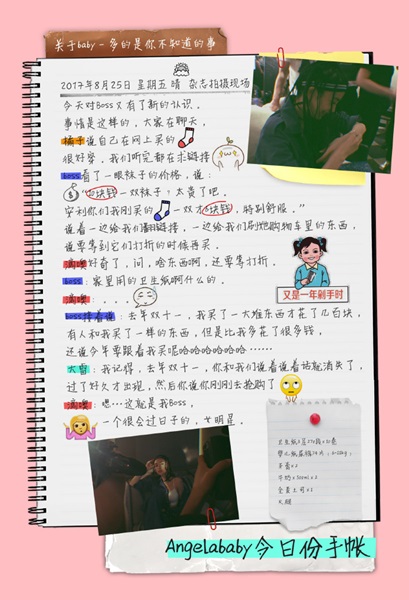 关于baby－多的是你不知道的事
2017年8月25日 星期五 晴 杂志拍摄现场
今天对Boss又有了新的认识。
事情是这样的，大家在聊天，
橘子说自己在网上买的
很好穿，我们听完都在求链接
boss看了一眼袜子的价格，说：
“20块钱一双袜子？太贵了吧。
穿别你们我刚买的 一双才5块钱，特别舒服。”
说着一边给我们翻链接，一边给我们刷她购物车里的东西，
说要等到它们打折的时候再买。
好奇了，问，啥东西啊，还要等打折。
boss：家里用的卫生纸啊什么的。
：。。。
boss接着说：去年双十一，我买了一大堆东西才花了几百块，
有人和我买了一样的东西，但是比我多花了很多钱，
还说今年要跟着我买呢哈哈哈哈哈哈……
：我记得，去年双十一，你和我们说着说着话就消失了，
过了好久才出现，然后你说你刚刚去抢购了
：嗯…这就是我Boss，
一个很会过日子的，女明星。
又是一年剁手时
Angelababy今日份手帐